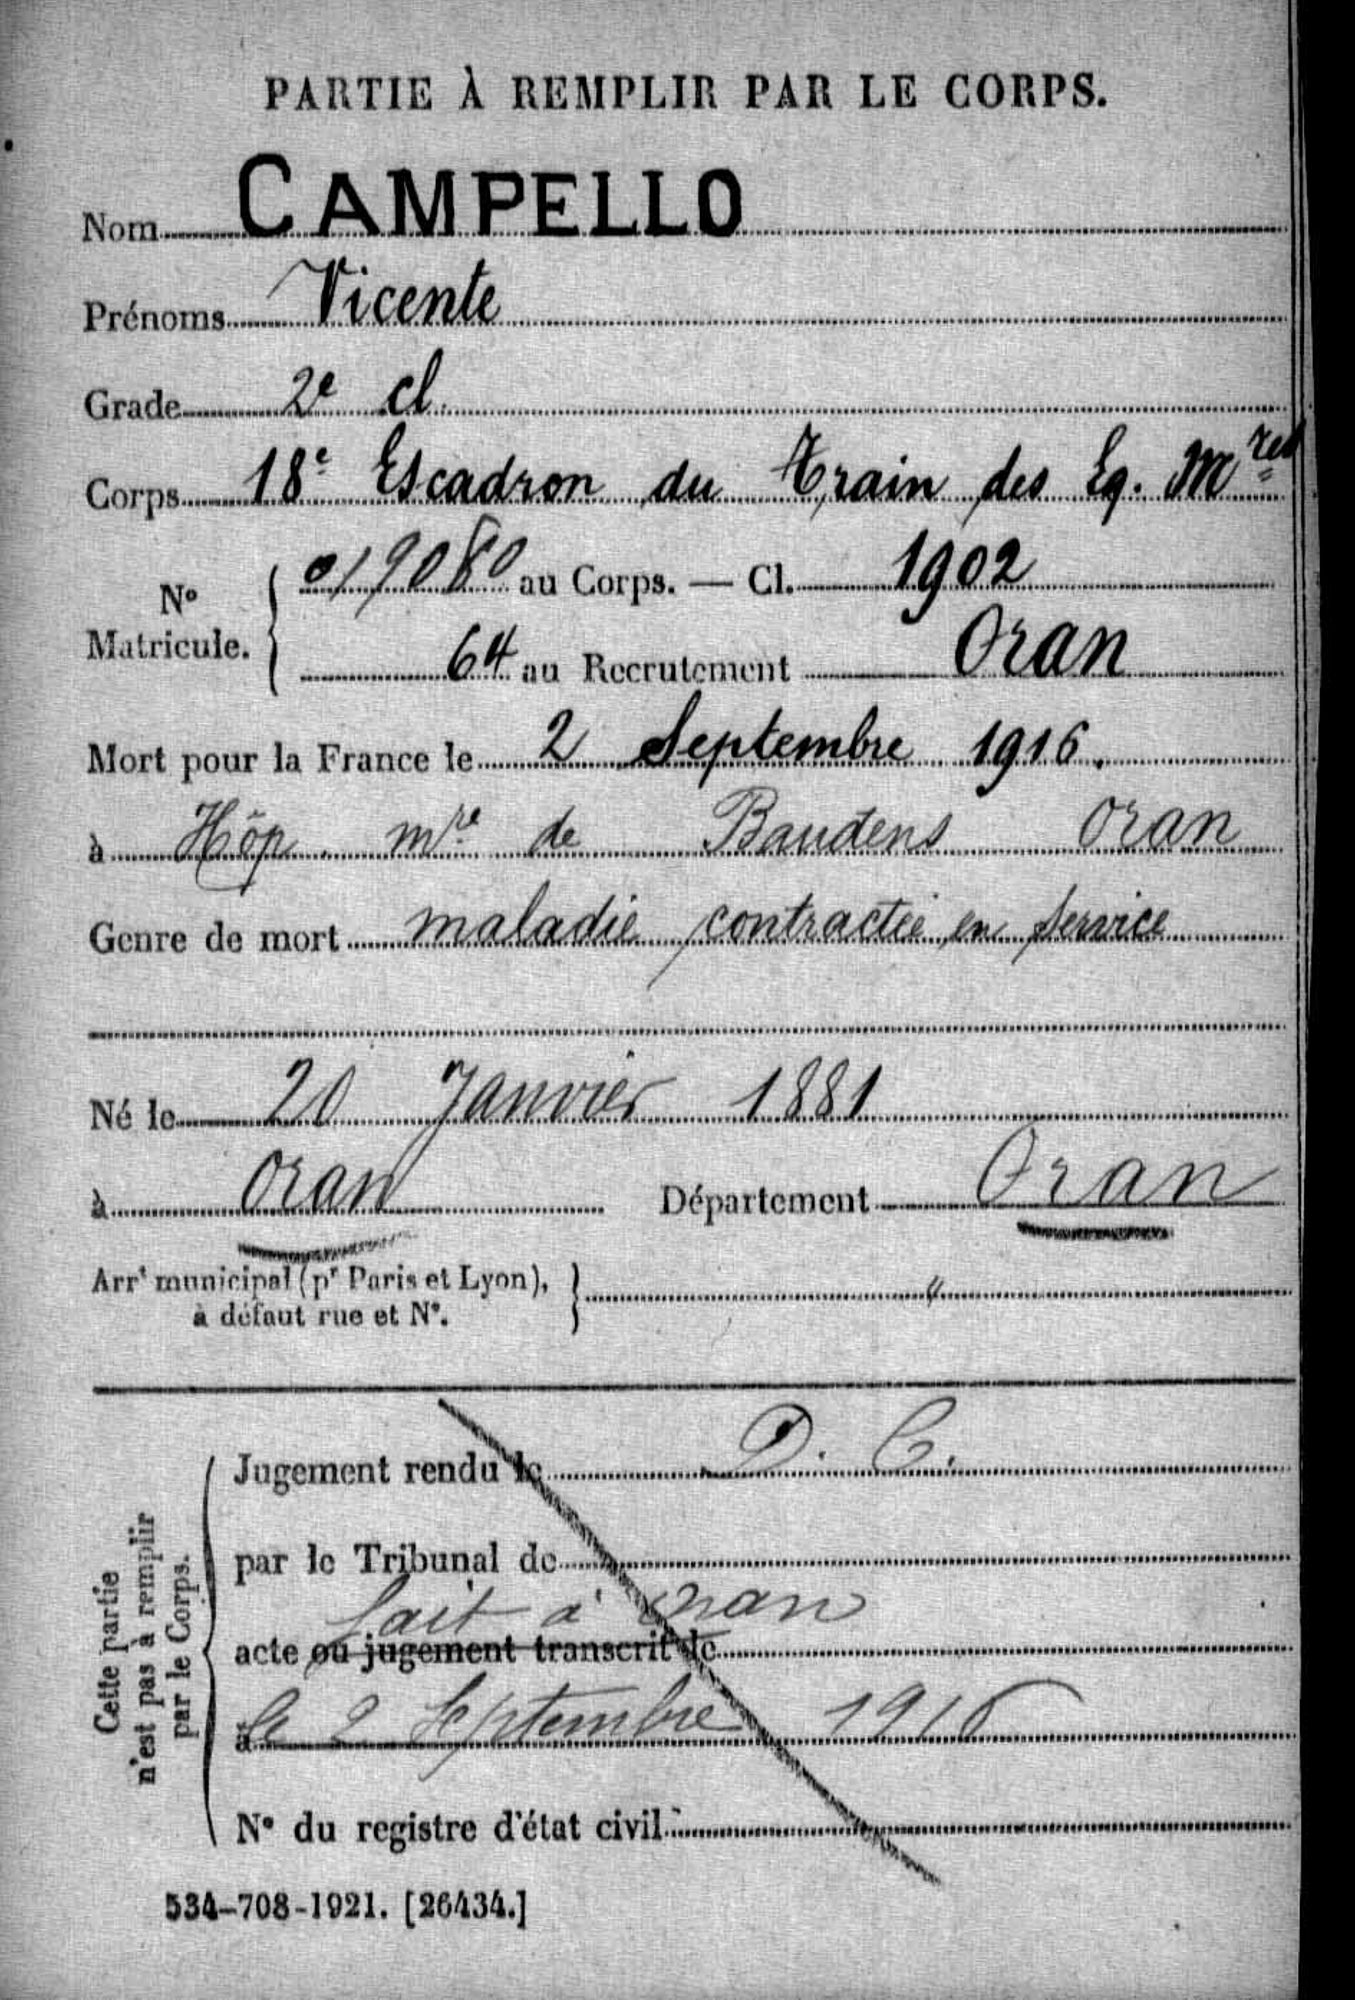 PARTIE À REMPLIR PAR LE CORPS.
Nom CAMPELLO
Prénoms Vicente
Grade 2e cl.
Corps 18e Escadron du Train des Eq. Mres
No Matricule. { 019080 au Corps. — Cl. 1902
64 au Recrutement Oran
Mort pour la France le 2 Septembre 1916.
à Hôp. mre de Baudens Oran
Genre de mort maladie contractée en service
Né le 20 Janvier 1881
à Oran Département Oran
Arrt municipal (pr Paris et Lyon), à défaut rue et No. } "
Cette partie n'est pas à remplir par le Corps.
Jugement rendu le D. C.
par le Tribunal de
fait à Oran
acte ou jugement transcrit le
à le 2 Septembre 1916
No du registre d'état civil
534-708-1921. [26434.]